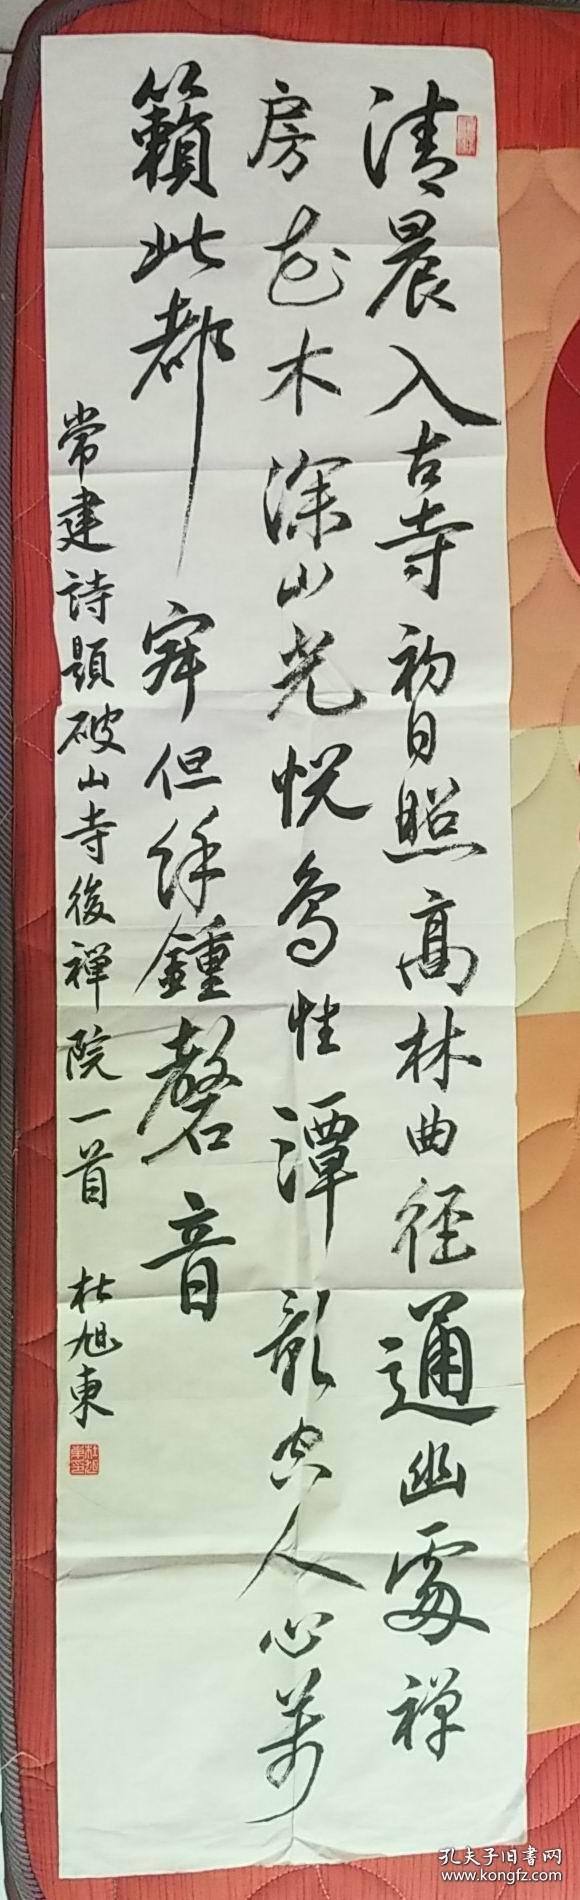 清晨入古寺初日照高林曲径通幽處禅
房花木深山光悦鸟性潭影空人心万
籟此都寂但余鍾磬音
常建詩題破山寺後禅院一首 杜旭東
孔夫子旧書网
www.kongfz.com